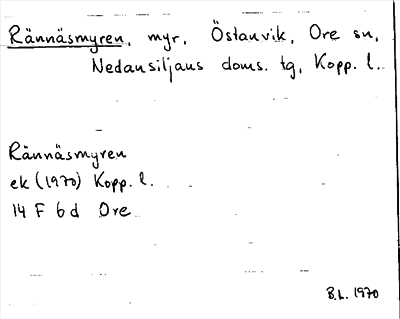 Rännäsmyren, myr, Östanvik, Ore sn,
Nedansiljans doms. tg, Kopp. l.
Rännäsmyren
ek (1970) Kopp. l.
14 F 6 d Ore
B.L. 1970